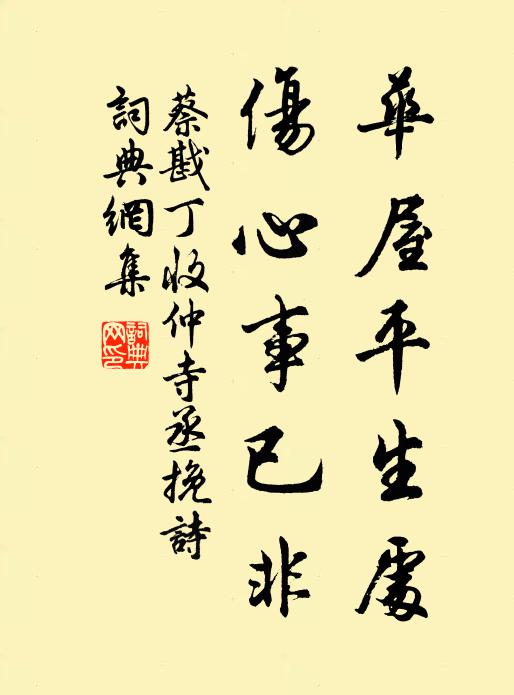 華屋平生處
傷心事已非
蔡戡丁收仲寺丞挽詩
詞典網集
詞典
网印